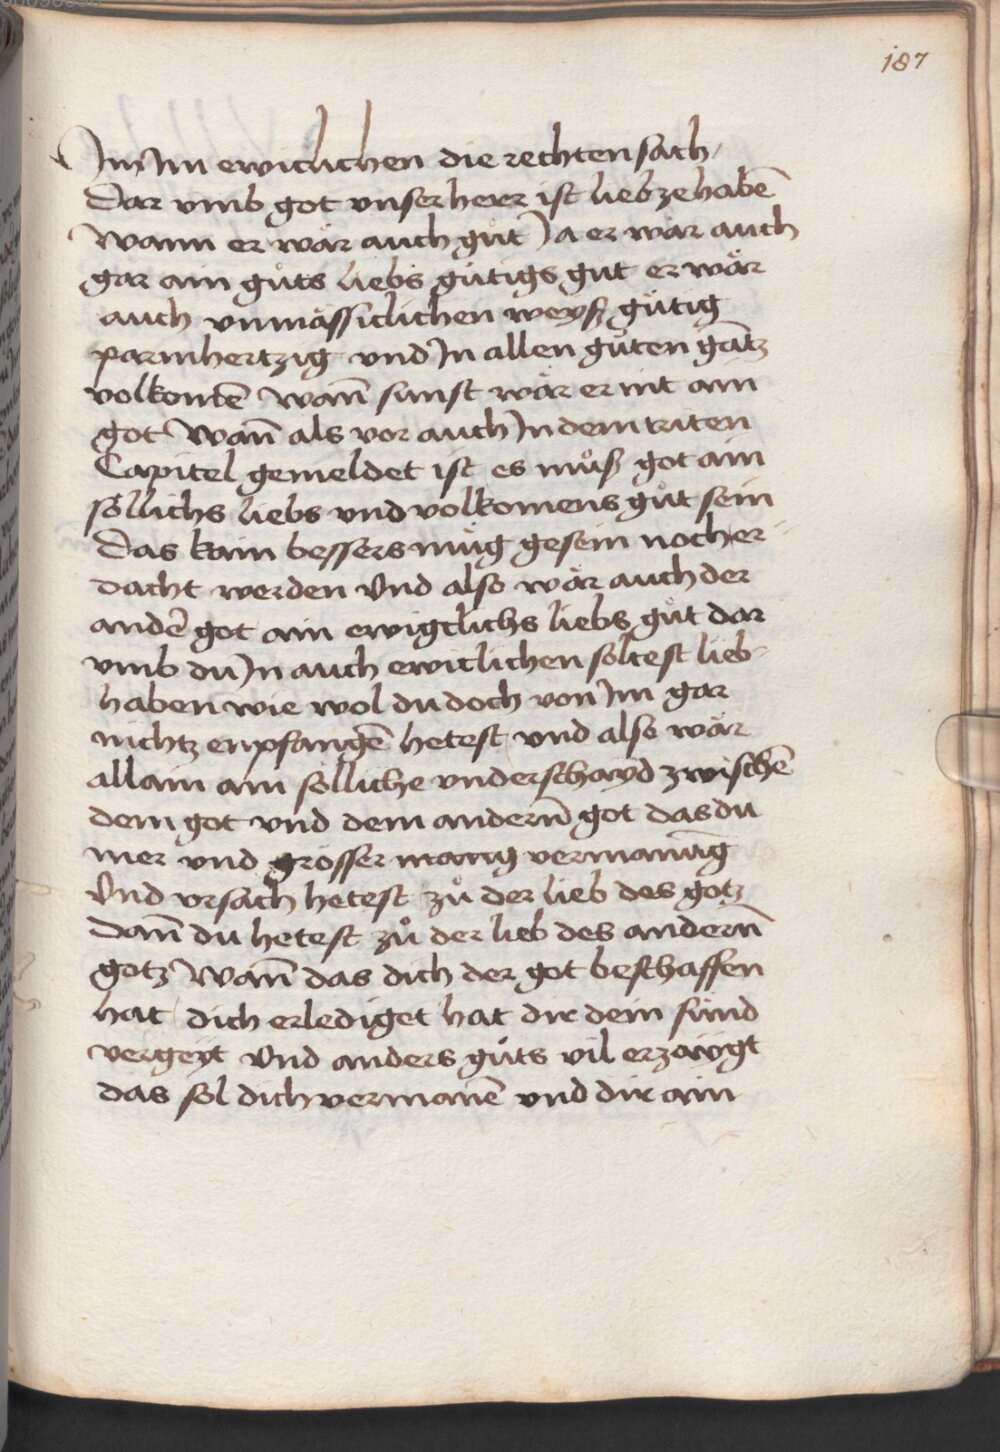 187
In Im ewiclichen die rechten sach
Dar vmb got vnser herr ist lieb ze habē
Wann er wår auch gůt Ja er wår auch
gar ain gůts liebs gütigs gůt er wår
auch vnmåssiclichen weyß gütig
parmhertzig vnd In allen gůten gātz
volkomē Wañ sunst wår er nit ain
got Wañ als vor auch In dem triten
Capitel gemeldet ist es můß got ain
söllichs liebs vnd volkomens gůt sein
Das kain bessers müg gesein noch er
dacht werden Vnd also wår auch der
andē got ain ewigclichs liebs gůt dar
vmb du In auch ewiclichen soltest lieb
haben wie wol du doch von Im gar
nichtz enpfangē hetest vnd also wår
allain ain solliche vnderschayd zwischē
dem got vnd dem anderñ got das du
mer vnd grösser manig vermanūg
Vnd vrsach hetest zů der lieb des gotz
Dañ du hetest zů der lieb des anderñ
gotz Wañ das dich der got beschaffen
hat dich erlediget hat dir dein sünd
vergeyt Vnd anders gůts vil erzaygt
das sol dich vermanē vnd dir ain